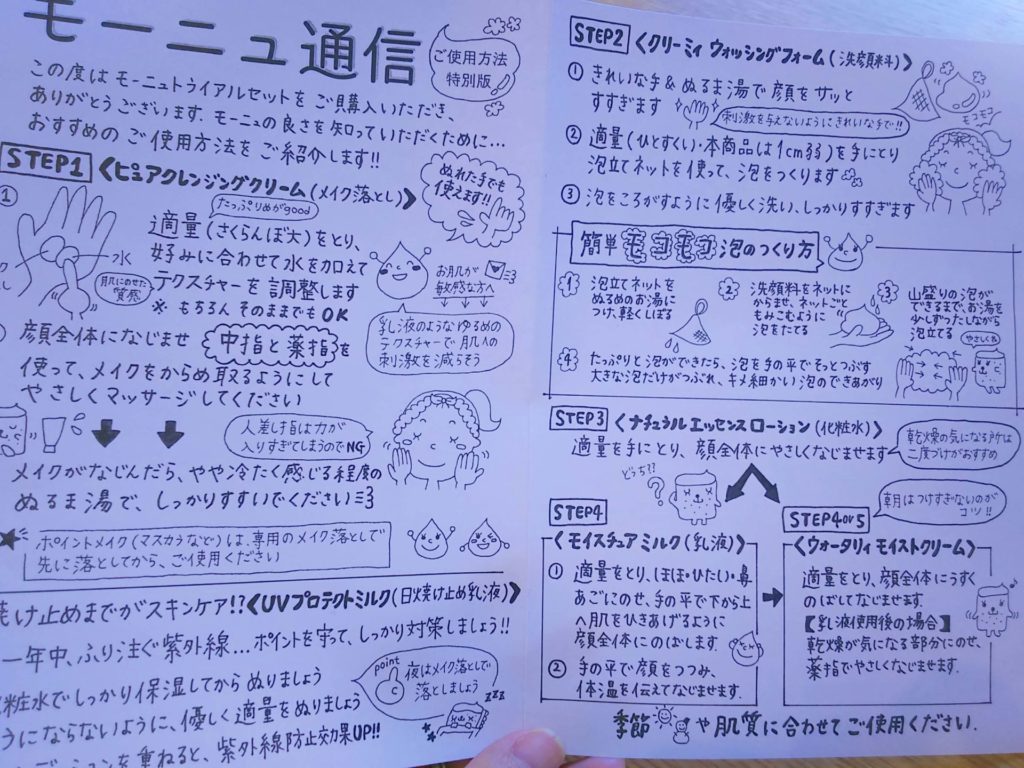 モーニュ通信
ご使用方法
特別版
この度は モーニュトライアルセットを ご購入いただき、
ありがとうございます。モーニュの良さを知っていただくために…
おすすめの ご使用方法を ご紹介します!!
STEP1 《ピュアクレンジングクリーム(メイク落とし)》
ぬれた手でも
使えます!!
①
水
肌にのせた
質感
たっぷりめがgood
適量(さくらんぼ大)をとり、
お好みに合わせて水を加えて
テクスチャーを調整します
※ もちろん そのままでも OK
お肌が
敏感な方へ
乳液のような ゆるめの
テクスチャーで 肌への
刺激を減らそう
顔全体になじませ 中指と薬指を
使って、メイクをからめ取るようにして
やさしくマッサージしてください
人差し指は力が
入りすぎてしまうのでNG
メイクがなじんだら、やや冷たく感じる程度の
ぬるま湯で、しっかりすすいでください
ポイントメイク(マスカラなど)は、専用のメイク落としで
先に落としてから、ご使用ください
焼け止めまでがスキンケア!?《UVプロテクトミルク(日焼け止め乳液)》
一年中、ふり注ぐ紫外線…ポイントを守って、しっかり対策しましょう!!
化粧水でしっかり保湿してから ぬりましょう
うにならないように、優しく適量をぬりましょう
ションを重ねると、紫外線防止効果UP!!
point
夜はメイク落としで
落としましょう
zzz
STEP2 《クリーミィ ウォッシングフォーム(洗顔料)》
① きれいな手&ぬるま湯で顔をサッと
すすぎます
刺激を与えないようにきれいな手で!!
モコモコ
② 適量(ひとすくい・本商品は1cm弱)を手にとり
泡立てネットを使って、泡をつくります
③ 泡をころがすように優しく洗い、しっかりすすぎます
簡単 モコモコ 泡のつくり方
1 泡立てネットを
ぬるめのお湯に
つけ、軽くしぼる
2 洗顔料をネットに
からませ、ネットごと
もみこむように
泡をたてる
3 山盛りの泡が
できるまで、お湯を
少しずつたしながら
泡立てる
やさしくね
4 たっぷりと泡ができたら、泡を手の平でそっとつぶす
大きな泡だけがつぶれ、キメ細かい泡のできあがり
STEP3 《ナチュラル エッセンス ローション(化粧水)》
適量を手にとり、顔全体にやさしくなじませます
乾燥の気になる所は
二度づけがおすすめ
どっち??
朝はつけすぎないのが
コツ!!
STEP4
《モイスチュア ミルク(乳液)》
① 適量をとり、ほほ・ひたい・鼻
あごにのせ、手の平で下から上
へ肌をひきあげるように
顔全体にのばします
② 手の平で顔をつつみ、
体温を伝えてなじませます。
STEP4or5
《ウォータリィ モイストクリーム》
適量をとり、顔全体にうすく
のばしてなじませます。
【乳液使用後の場合】
乾燥が気になる部分にのせ、
薬指でやさしくなじませます。
季節 や肌質に合わせて ご使用ください。